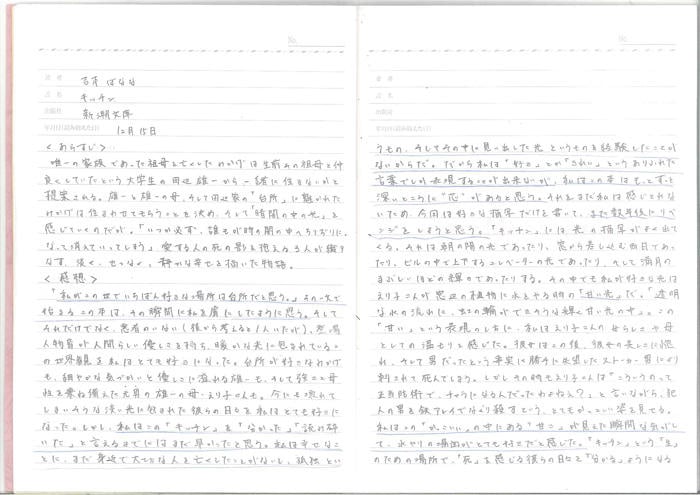 No.
著者 吉本ばなな
書名 キッチン
出版社 新潮文庫
年月日(読み終えた日) 12月15日
<あらすじ>
唯一の家族であった祖母を亡くしたみかげは生前その祖母と仲
良くしていたという大学生の田辺雄一から一緒に住まないかと
提案される。雄一と雄一の母、そして田辺家の「台所」に魅かれた
みかげは住まわせてもらうことを決め、そして「暗闇の中の光」を
感じていくのだが。「いつか必ず、誰もが時の闇の中へちりぢりに
なって消えていってしまう」愛する人の死の影を抱える3人が織り
なす、淡く、せつなく、静かな幸せを描いた物語。
<感想>
「私がこの世でいちばん好きな場所は台所だと思う。」この一文で
始まるこの本は、その瞬間に私を虜にしたように思う。そして
それだけでなく、悪者のいない(後から考えると1人いたが)、登場
人物皆が人間らしい優しさを持ち、暖かな光に包まれているこ
の世界観を私はとても好きになった。台所が好きなみかげ
も、細やかな気づかいと優しさに溢れる雄一も、そして強さと母
性を兼ね備えた元男の雄一の母・えり子さんも。今にも壊れて
しまいそうな淡い光に包まれた彼らの日々を私はとても好きに
なった。しかし、私はこの「キッチン」を「分かった」「読み砕
いた」と言えるまでにはまだ早かったと思う。私は幸せなこ
とに、まだ身近で大切な人を亡くしたことがないし、孤独とい
No.
著者
書名
出版社
年月日(読み終えた日)
うもの、そしてその中に見い出した光というものを経験したことが
ないからだ。だから私は「好き」とか「きれい」というありふれた
言葉でしか表現することが出来ないが、私はこの本はもっとずっと
深いところに"芯"があると思う。それをまだ私は感じとれな
いため、今回は好きな描写だけを書いて、また数年後にリベ
ンジをしようと思う。「キッチン」には光の描写がよく出て
くる。それは朝の陽の光であったり、窓から差し込む西日であっ
たり、ビルの中を上下するエレベーターの光であり、そして満月の
まぶしいほどの輝きであったりする。その中でも私が好きな光は
えり子さんが窓辺の植物に水をやる時の「甘い光」だ。「透明
な水の流れに、虹の輪ができそうな輝く甘い光の中。」この
「甘い」という表現のしかたに、私はえり子さんの女らしさや母
としての温もりと感じた。彼女はこの後、彼女の美しさに惚
れ、そして男だったという事実に勝手に失望したストーカー男により
刺されて死んでしまう。しかしその時もえり子さんは"こういうのって
正当防衛で、チャラになるんだったわねえ?"と言いながら、犯
人の男を鉄アレイでなぐり殺すという、とてもかっこいい姿を見せる。
私はこの"かっこいい"の中にある"甘さ"が見えた瞬間な気がし
て、水やりの場面がとても好きだと感じた。「キッチン」という「生」
のための場所で、「死」を感じる彼らの日々を「分かる」ようになる